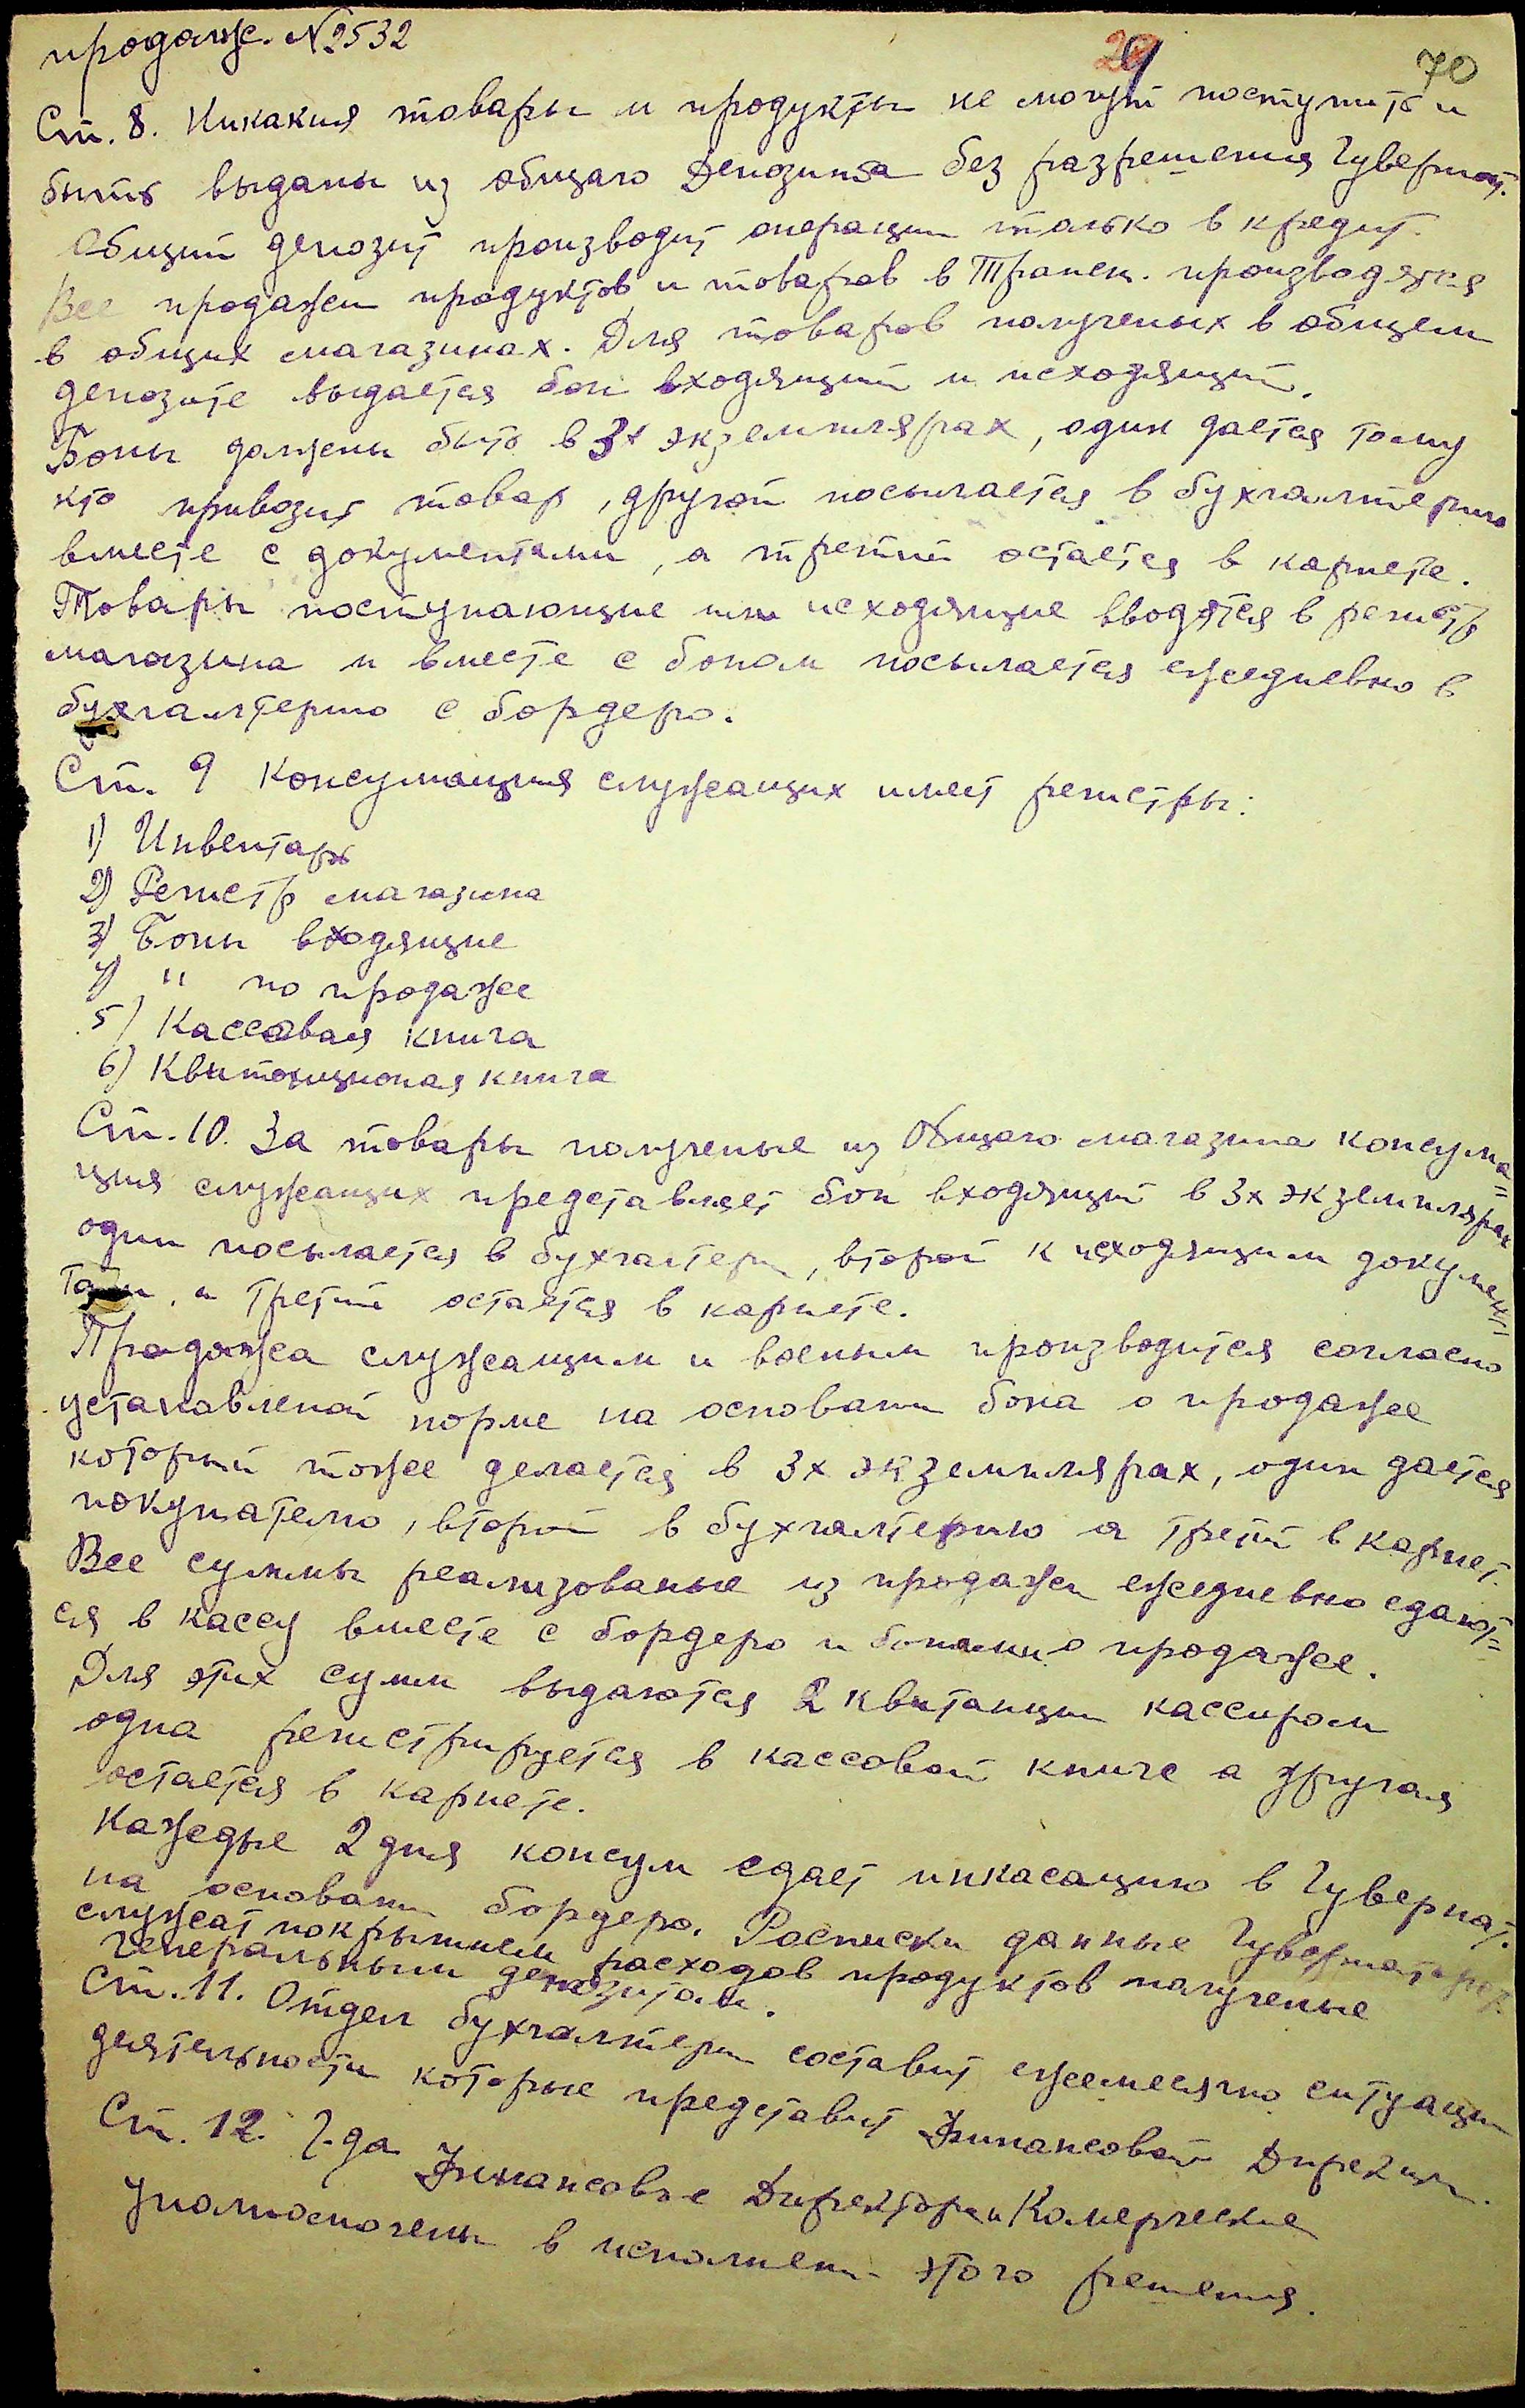 продолж. №2532
29 70
Ст. 8. Никакия товары и продукты не могут поступить и
быть выданы из общаго Депозита без разрешения Губернат.
Общий депозит производит операции только в кредит.
Все продажи продуктов и товаров в Трансн. производятся
в общих магазинах. Для товаров полученых в общем
депозите выдается бон входящий и исходящий.
Боны должены быть в 3х экземплярах, один дается тому
кто привозит товар, другой посылается в бухгалтерию
вместе с документами, а третий остается в карнете.
Товары поступающие или исходящие вводятся в регистр
магазина и вместе с боном посылается ежедневно в
бухгалтерию с бордеро.
Ст. 9 Консумация служащих имеет регистры:
1) Инвентарь
2) Регистр магазина
3) Боны входящие
4) " по продаже
5) Кассовая книга
6) Квитоционая книга
Ст. 10. За товары полученые из Общаго магазина консума=
ция служащих представляет бон входящий в 3х экземплярах
один посылается в бухгалтери, второй к исходящим докумен=
там, и третий остается в карнете.
Продажа служащим и военым производится согласно
установленой норме на основани бона о продаже
который тоже делается в 3х экземплярах, один дается
покупателю, второй в бухгалтерию а трети в карнет.
Все суммы реализованые из продажи ежедневно сдают=
ся в кассу вместе с бордеро и бонами о продаже.
Для этих сумм выдаются 2 квитанции кассиром
одна регистрируется в кассовой книге а другая
остается в карнете.
Каждые 2 дня консум сдает инкасацию в Губернат.
на основани бордеро. Расписки данные Губернаторст.
служат покрытием расходов продуктов полученые
генеральным депозитом.
Ст. 11. Отдел бухгалтери составит ежемесячно ситуации
деятельности которые представит Финансовой Дирекции.
Ст. 12. Г-да Финансовые Директоры и Комерческие
уполномочены в исполнени этого решения.